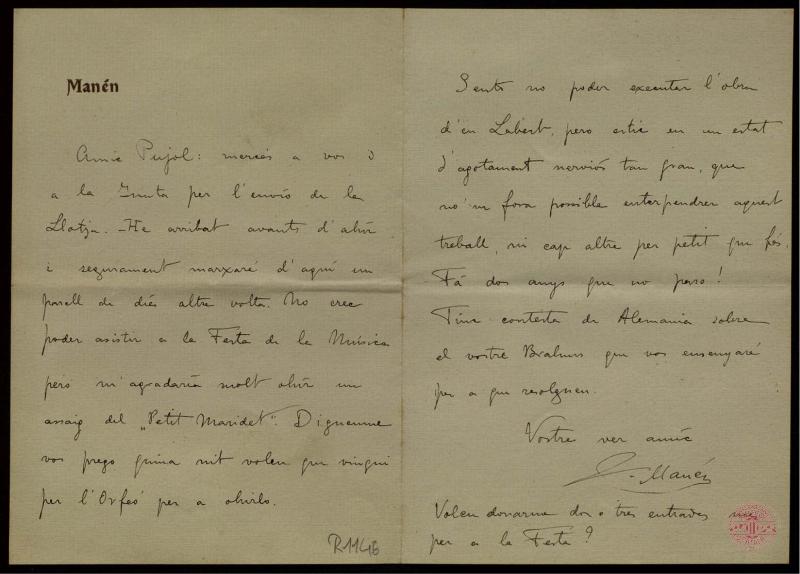 Manén
Amic Pujol: mercés a vos i
a la Junta per l'envío de la
Llotja. - He arribat avants d'ahir
i segurament marxaré d'aquí un
parell de diés altre volta. No crec
poder asistir a la Festa de la Música
peró m'agradaría molt ohir un
assaig del "Petit Maridet". Digueume
vos prego quina nit voleu que vingui
per l'Orfeó per a ohirlo.
R1146
Sento no poder executar l'obra
d'en Labert, pero estic en un estat
d'agotament nerviós tan gran, que
no'm fora possible enterpendrer aquest
treball, ni cap altre per petit que fós.
Fá dos anys que no paro!
Tinc contesta de Alemania sobre
el vostre Brahms que vos ensenyaré
per a que resolgueu.
Vostre ver amic
J. Manén
Voleu donarme dos o tres entrades
per a la Festa?